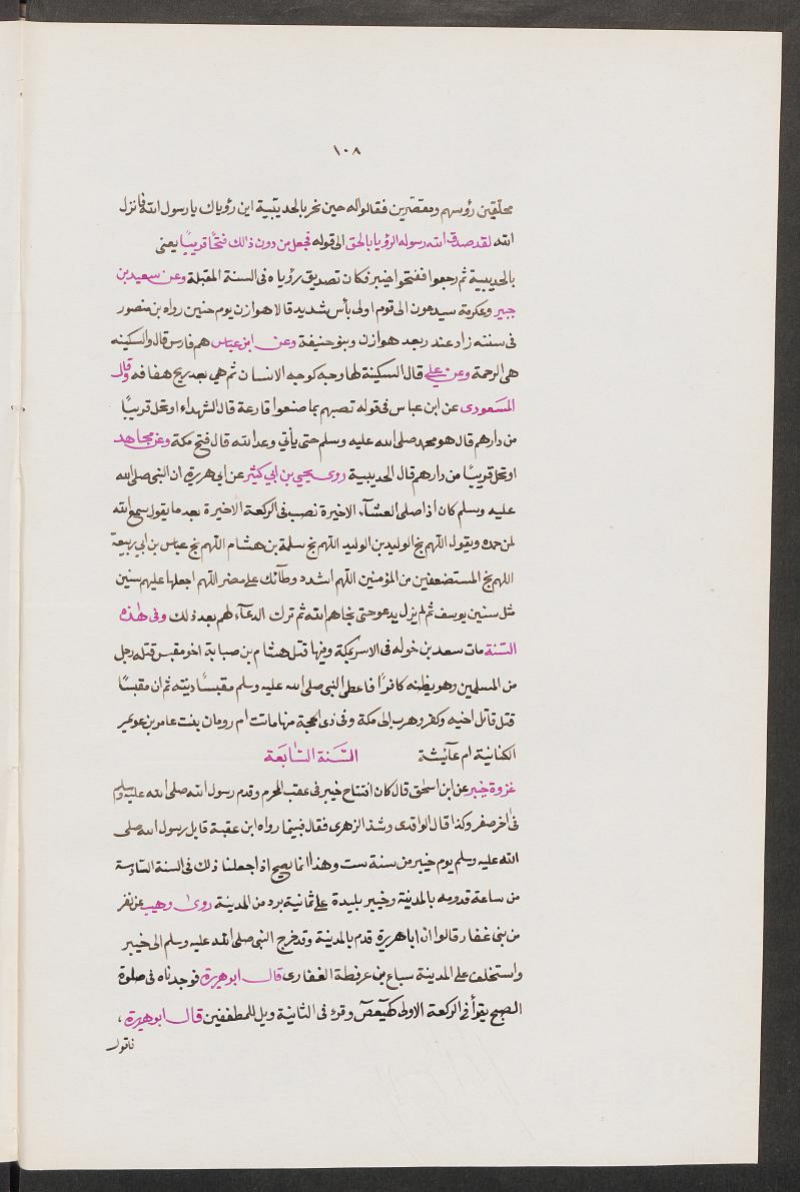 ١٠٨
محلقين رؤسهم ومقصرين فقالوا له حين نحر بالحديبية اين رؤياك يا رسول الله فانزل
الله لقد صدق الله رسوله الرؤيا بالحق الى قوله فجعل من دون ذالك فتحًا قريبًا يعنى
بالحديبية ثم رجعوا ففتحوا خيبر فكان تصديق رؤياه فى السنة المقبلة وعن سعيد بن
جبير وعكرمة سيدعون الى قوم اولى بأس شديد قالا هوازن يوم حنين رواه بن منصور
فى سننه زاد عند ربعد هوازن وبنو حنيفة وعن ابن عباس هم فارس قال والسكينه
هى الرحمة وعن علي قال السكينة لها وجه كوجه الانسان ثم هي بعد ريح هفافه وقال
المسعودى عن ابن عباس فى قوله تصيبهم بما صنعوا قارعة قال الشهداء او تحل قريبًا
من دارهم قال هو محمد صلى الله عليه وسلم حتى يأتي وعد الله قال فتح مكة وعن مجاهد
او تحل قريبًا من دارهم قال الحديبية روى يحيي بن ابي كثير عن ابي هريرة ان النبى صلى الله
عليه وسلم كان اذا صلى العشآء الاخيرة نصب فى الركعة الاخيرة بعد ما يقول سمع الله
لمن حمده ويقول اللهم نج الوليد بن الوليد اللهم نج سلمة بن هشام اللهم نج عباس بن ابي ربيعة
اللهم نج المستضعفين من المؤمنين اللهم اشدد وطأتك على مضر اللهم اجعلها عليهم سنين
مثل سنين يوسف ثم لم يزل يدعو حتى نجاهم الله ثم ترك الدعآء لهم بعد ذلك وفى هذه
السنة مات سعد بن خوله فى الاسر بمكة وفيها قتل هشام بن صبابة اخو مقيس قتله رجل
من المسلمين وهو يظنه كافرًا فاعطى النبي صلى الله عليه وسلم مقيسًا ديته ثم ان مقيسًا
قتل قاتل اخيه وكفر وهرب الى مكة وفى ذى الحجة منها ماتت ام رومان بنت عامر بن عويمر
الكنانية ام عآئيشة السنة السابعة
غزوة خيبر عن ابن اسحق قال كان افتتاح خيبر فى عقب المحرم وقدم رسول الله صلى الله عليه وسلم
فى اخر صفر وكذا قال الواقدى وشذ الزهرى فقال فيما رواه ابن عقبة قابل رسول الله صلى
الله عليه وسلم يوم خيبر من سنة ست وهذا انما يصح اذا جعلنا ذلك فى السنة السادسة
من ساعة قدومه بالمدينة وخيبر بليدة على ثمانية برد من المدينة روى وهيب عن نفر
من بنى غفار قالوا ان ابا هريرة قدم بالمدينة وقد خرج النبى صلى الله عليه وسلم الى خيبر
واستخلف على المدينة سباع بن عرفطة الغفارى قال ابو هريرة فوجدناه فى صلوة
الصبح يقرأ فى الركعة الاولى كهيعص وقرء فى الثانية ويل للمطففين قال ابو هريرة ،
فاقول